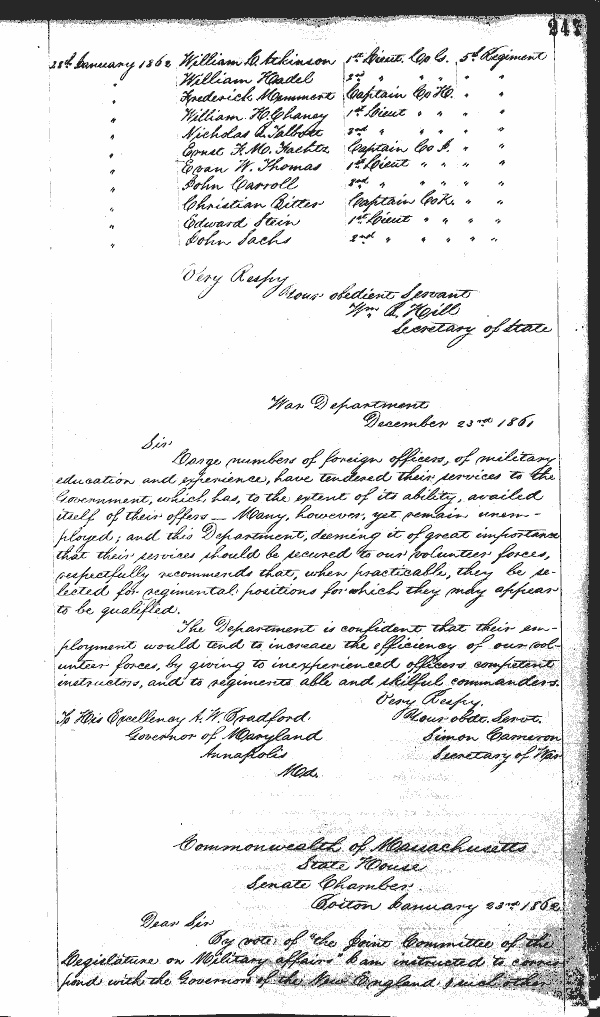 247
28th January 1862 William L. Atkinson 1st Lieut. Co G. 5th Regiment
" William Kadel 2nd " " " " "
" Frederick Mammert Captain Co H. " "
" William H. Chaney 1st Lieut " " " "
" Nicholas A. Talbott 2nd " " " " "
" Ernst F. M. Faehtz Captain Co I. " "
" Evan W. Thomas 1st Lieut " " " "
" John Carroll 2nd " " " " "
" Christian Bitter Captain Co K. " "
" Edward Stein 1st Lieut " " " "
" John Sachs 2nd " " " " "
Very Respy
Your obedient Servant
Wm B. Hill
Secretary of State
War Department
December 23rd 1861
Sir
Large numbers of foreign officers, of military
education and experience, have tendered their services to the
Government, which, has, to the extent of its ability, availed
itself of their offers — Many, however, yet remain unem-
ployed; and this Department, deeming it of great importance
that their services should be secured to our volunteer forces,
respectfully recommends that, when practicable, they be se-
lected for regimental positions for which they may appear
to be qualified.
The Department is confident that their em-
ployment would tend to increase the efficiency of our vol-
unteer forces, by giving to inexperienced officers competent
instructors, and to regiments able and skilful commanders.
Very Respy.
To His Excellency A. W. Bradford. Your obdt. Servt.
Governor of Maryland Simon Cameron
Annapolis Secretary of War
Md.
Commonwealth of Massachusetts
State House
Senate Chamber.
Boston January 23rd 1862
Dear Sir
By vote of "the Joint Committee of the
Legislature on Military affairs" I am instructed to corres
pond with the Governors of the New England & such other